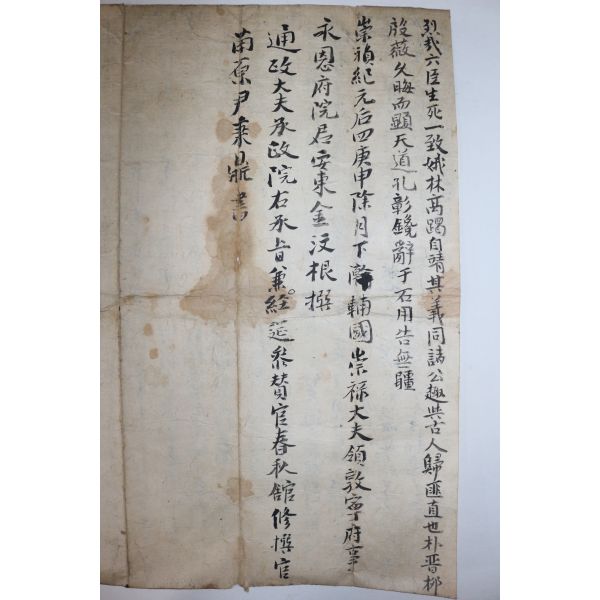 烈哉六臣生死一致娥林高躅自靖其義同諸公趣共古人歸匪直也朴晋柳
殷薇久晦而顯天道孔彰鑱辭于石用告無疆
崇禎紀元后四庚申除月下澣輔國崇祿大夫領敦寧府事
永恩府院君安東金汶根撰
通政大夫承政院右承旨兼經筵參贊官春秋館修撰官
南原尹秉書